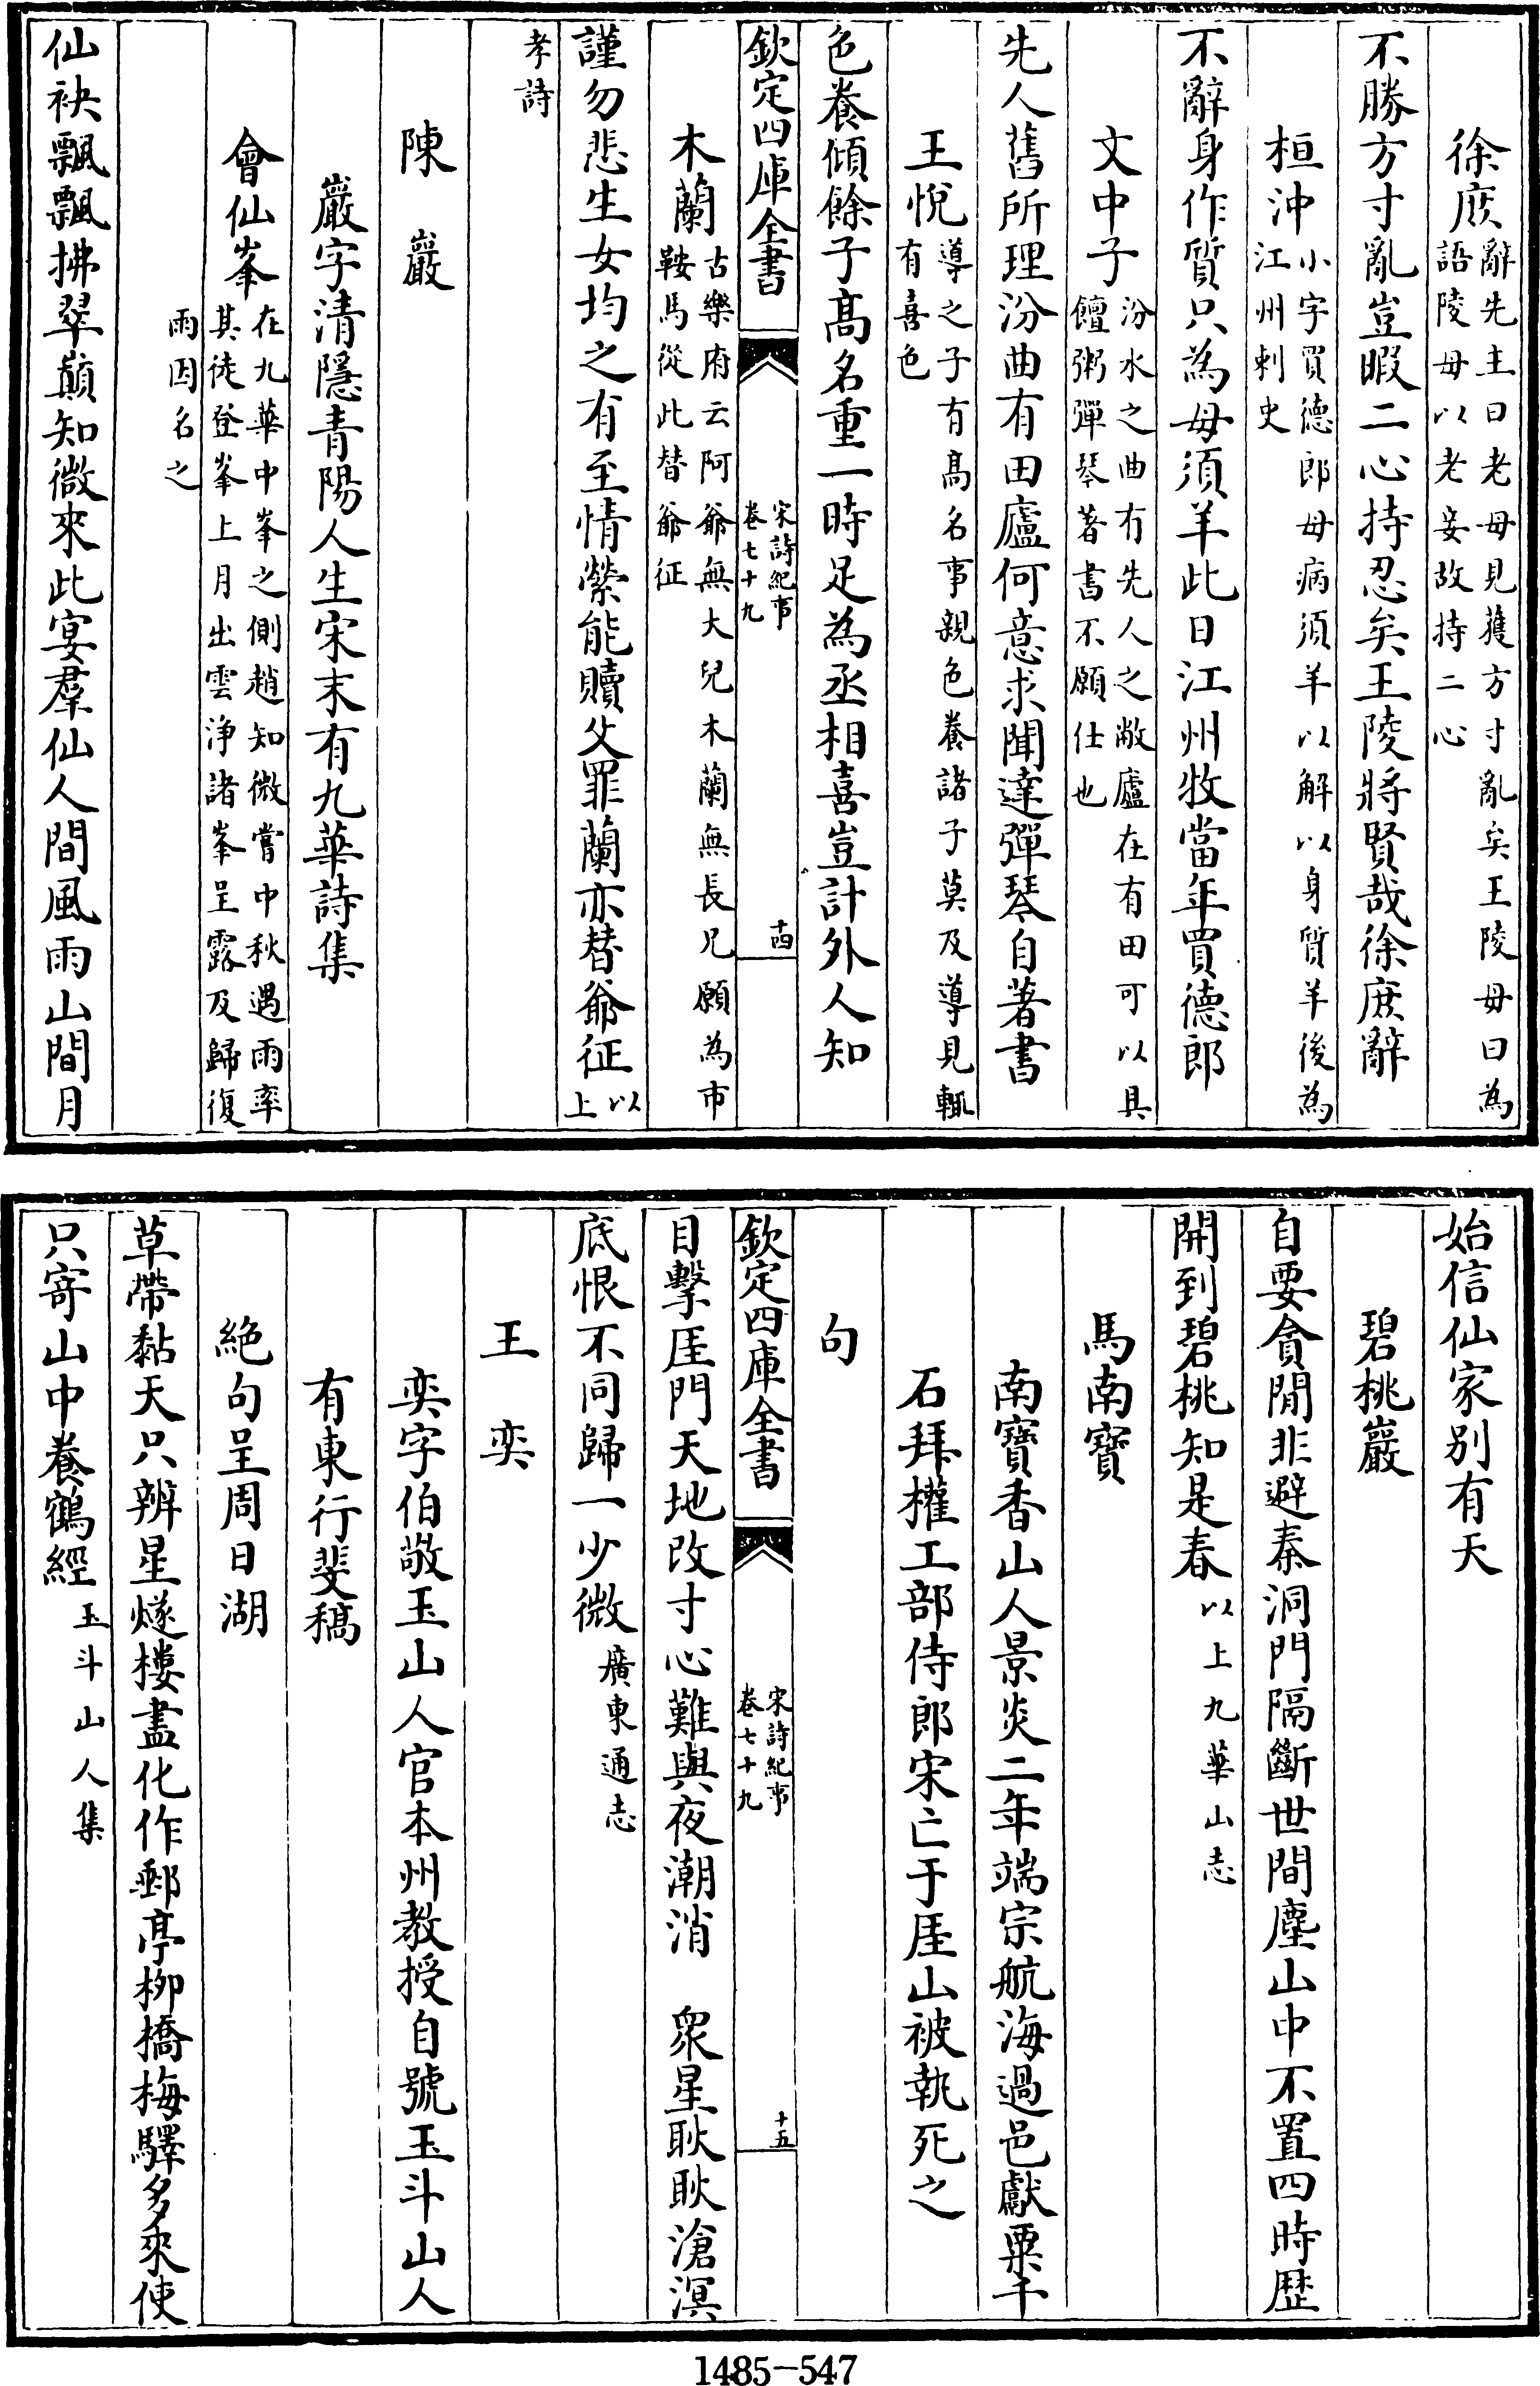 徐庶辭先主曰老母見獲方寸亂矣王陵母曰為
語陵母以老妾故持二心
不勝方寸亂豈暇二心持忍矣王陵將賢哉徐庶辭
桓沖小字買德郎母病須羊以解以身質羊後為
江州刺史
不辭身作質只為母須羊此日江州牧當年買德郎
文中子汾水之曲有先人之敝廬在有田可以具
饘粥彈琴著書不願仕也
先人舊所理汾曲有田廬何意求聞達彈琴自著書
王悅導之子有髙名事親色養諸子莫及導見輒
有喜色
色養傾餘子髙名重一時足為丞相喜豈計外人知
欽定四庫全書
宋詩紀事
卷七十九
十四
木蘭古樂府云阿爺無大兒木蘭無長兄願為市
鞍馬從此替爺征
謹勿悲生女均之有至情縈能贖父罪蘭亦替爺征以
上
孝詩
陳巖
巖字清隱青陽人生宋末有九華詩集
會仙峯在九華中峯之側趙知微嘗中秋遇雨率
其徒登峯上月出雲浄諸峯呈露及歸復
雨因名之
仙袂飄飄拂翠巔知微來此宴羣仙人間風雨山間月
始信仙家别有天
碧桃巖
自要貪閒非避秦洞門隔斷世間塵山中不置四時歴
開到碧桃知是春以上九華山志
馬南寶
南寶香山人景炎二年端宗航海過邑獻粟千
石拜權工部侍郎宋亡于厓山被執死之
句
欽定四庫全書
宋詩紀事
卷七十九
十五
目擊厓門天地改寸心難與夜潮消　衆星耿耿滄溟
底恨不同歸一少微廣東通志
王奕
奕字伯敬玉山人官本州教授自號玉斗山人
有東行斐稿
絶句呈周日湖
草帶黏天只辨星燧樓盡化作郵亭栁橋梅驛多來使
只寄山中養鶴經玉斗山人集
1485-547